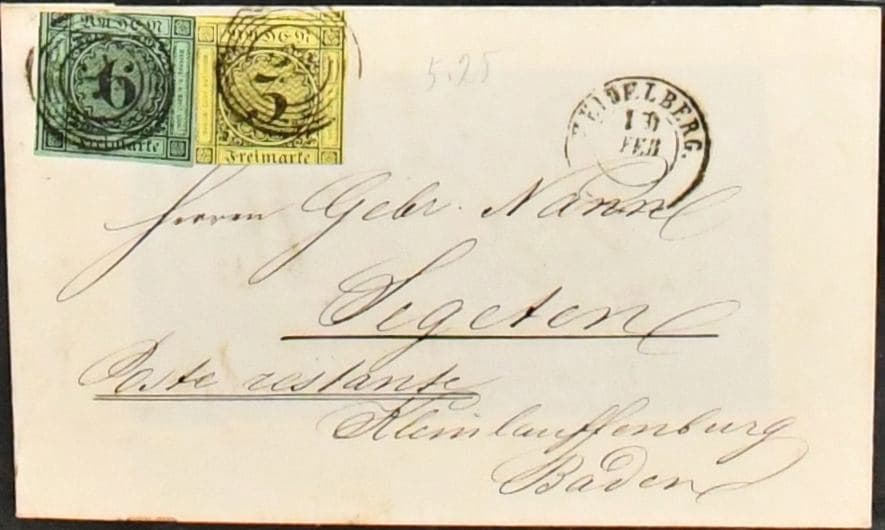 BADEN BADEN
6 3
Freimarke Freimarke
5.25
HEIDELBERG.
10
FEB
Herren Gebr. Nann
Segeten
Poste restante
Kleinlauffenburg
Baden